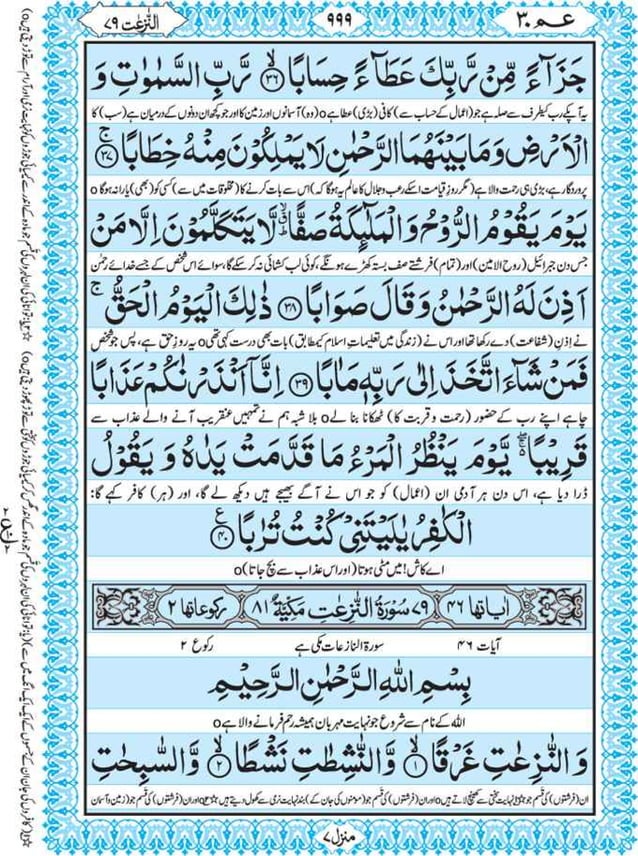 عم ٣٠
٩٩٩
النّٰزعٰت ٧٩
جَزَآءً مِّنْ رَّبِّكَ عَطَآءً حِسَابًا ﴿٣٦﴾ رَّبِّ السَّمٰوٰتِ وَ
یہ آپکے رب کیطرف سے صلہ ہے جو (اعمال کے حساب سے) کافی (بڑی) عطا ہےo (وہ) آسمانوں اور زمین کا اور جو کچھ ان دونوں کے درمیان ہے (سب) کا
الْاَرْضِ وَمَا بَيْنَهُمَا الرَّحْمٰنِ لَا يَمْلِكُوْنَ مِنْهُ خِطَابًا ﴿٣٧﴾ ج
پروردگار ہے، بڑی ہی رحمت والا ہے (مگر روزِ قیامت اسکے رعب و جلال کا عالم یہ ہوگا کہ) اس سے بات کرنے کا (مخلوقات میں سے) کسی کو (بھی) یارا نہ ہوگاo
يَوْمَ يَقُوْمُ الرُّوْحُ وَالْمَلٰٓئِكَةُ صَفًّا لَّا يَتَكَلَّمُوْنَ اِلَّا مَنْ
جس دن جبرائیل (روح الامین) اور (تمام) فرشتے صف بستہ کھڑے ہونگے، کوئی لب کشائی نہ کر سکے گا، سوائے اس شخص کے جسے خدائے رحمٰن
اَذِنَ لَهُ الرَّحْمٰنُ وَقَالَ صَوَابًا ﴿٣٨﴾ ذٰلِكَ الْيَوْمُ الْحَقُّ ج
نے اِذنِ (شفاعت) دے رکھا تھا اور اس نے (زندگی میں تعلیماتِ اسلام کیمطابق) بات بھی درست کہی تھیo یہ روزِ حق ہے، پس جو شخص
فَمَنْ شَآءَ اتَّخَذَ اِلٰى رَبِّهٖ مَاٰبًا ﴿٣٩﴾ اِنَّآ اَنْذَرْنٰكُمْ عَذَابًا
چاہے اپنے رب کے حضور (رحمت و قربت کا) ٹھکانا بنا لےo بلا شبہ ہم نے تمہیں عنقریب آنے والے عذاب سے
قَرِيْبًا يَّوْمَ يَنْظُرُ الْمَرْءُ مَا قَدَّمَتْ يَدٰهُ وَ يَقُوْلُ
ڈرا دیا ہے، اس دن ہر آدمی ان (اعمال) کو جو اس نے آگے بھیجے ہیں دیکھ لے گا، اور (ہر) کافر کہے گا:
الْكٰفِرُ يٰلَيْتَنِىْ كُنْتُ تُرٰبًا ﴿٤٠﴾ ع
اے کاش! میں مٹی ہوتا (اور اس عذاب سے بچ جاتا)o
اٰياتها ٤٦
٧٩ سُوْرَةُ النّٰزِعٰتِ مَكِّيَّةٌ ٨١
ركوعاتها ٢
آیات ٤٦
سورۃ النازعات مکی ہے
رکوع ٢
بِسْمِ اللهِ الرَّحْمٰنِ الرَّحِيْمِ
اللہ کے نام سے شروع جو نہایت مہربان ہمیشہ رحم فرمانے والا ہےo
وَالنّٰزِعٰتِ غَرْقًا ﴿١﴾ وَّالنّٰشِطٰتِ نَشْطًا ﴿٢﴾ وَّالسّٰبِحٰتِ
ان (فرشتوں) کی قسم جو نہایت سختی سے کھینچ لاتے ہیںo اور ان (فرشتوں) کی قسم جو (مومنوں کی جان کے) بند نہایت نرمی سے کھول دیتے ہیںo اور ان (فرشتوں) کی قسم جو (زمین و آسمان
منزل ٧